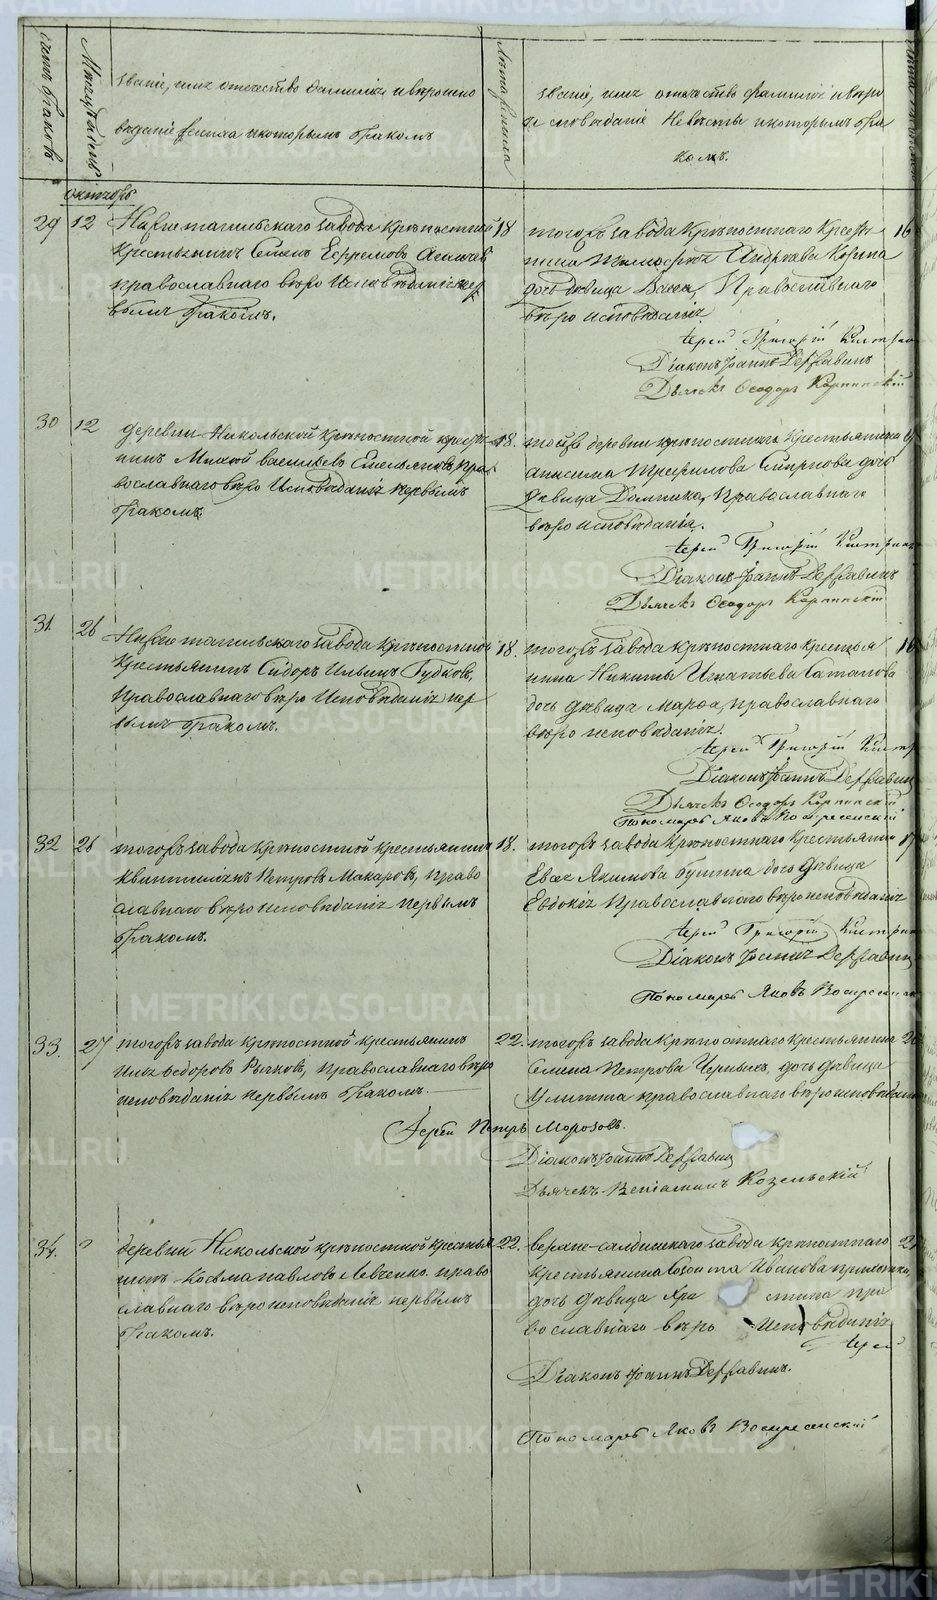 счетъ браковъ
Мѣсяцъ и день
Званіе, имя отечество фамилія и вѣроиспо
веданіе жениха и которымъ бракомъ
Лѣта жениха
Званіе, имя отечество фамилія и вѣро
исповѣданіе Невѣсты и которымъ бра
комъ.
октябрь
29 12
Нижнетагильскаго завода крѣпостной
крестьянинъ Семенъ Ефремовъ
православнаго вѣро исповѣданія пер
вымъ бракомъ.
18
тогожъ завода крѣпостнаго кресть
нина Андреева
дочь дѣвица Васса, Православнаго
вѣро исповѣданія
16
Іерей Григорій
Діаконъ Іоаннъ Державинъ
Дьячекъ Ѳеодоръ Карпинскій
30 12
деревни Никольской крѣпостной кресть
нинъ Васильевъ Емельяновъ, пра
вославнаго вѣро исповѣданія первымъ
бракомъ
18.
тойже деревни крѣпостнаго крестьянина
анисима Трифонова Смирнова дочь
дѣвица Домника, православнаго
вѣро исповѣданія.
Іерей Григорій
Діаконъ Іоаннъ Державинъ
Дьячекъ Ѳеодоръ Карпинскій
31. 26
Нижнетагильскаго завода крѣпостной
крестьянинъ Сидоръ Ильинъ Губковъ,
православнаго вѣро исповѣданія пер
вымъ бракомъ.
18.
тогожъ завода крѣпостнаго крестья
нина Никиты Игнатьева
дочь дѣвица Марѳа, православнаго
вѣро исповѣданія.
16
Іерей Григорій
Діаконъ Іоаннъ Державинъ
Дьячекъ Ѳеодоръ Карпинскій
Пономарь Яковъ Воскресенскій
32 26
тогожъ завода крѣпостной крестьянинъ
Квинтиліанъ Петровъ Макаровъ, право
славнаго вѣро исповѣданія первымъ
бракомъ.
18.
тогожъ завода крѣпостнаго крестьянин
Евѳ Якимова дочь дѣвица
Евдокія православнаго вѣро исповѣданія
17
Іерей Григорій
Діаконъ Іоаннъ Державинъ
Пономарь Яковъ Воскресенскій
33. 27
тогожъ завода крѣпостной крестьянинъ
Илія Ѳедоровъ Рычковъ, православнаго вѣро
исповѣданія первымъ бракомъ.
22.
тогожъ завода крѣпостнаго крестьянина
Семена Петрова Черныхъ, дочь дѣвица
Улитта православнаго вѣро исповѣдан
Іерей Петръ Морозовъ.
Діаконъ Іоаннъ Державинъ
Дьячекъ Веніаминъ Козельскій
34.
деревни Никольской крѣпостной крестья
нинъ Косьма павловъ Левченко. право
славнаго вѣро исповѣданія первымъ
бракомъ.
22.
верхне-салдинскаго завода крѣпостнаго
крестьянина Иванова
дочь дѣвица стина пра
вославнаго вѣро исповѣданія
Іерей
Діаконъ Іоаннъ Державинъ.
Пономарь Яковъ Воскресенскій
METRIKI.GASO-URAL.RU